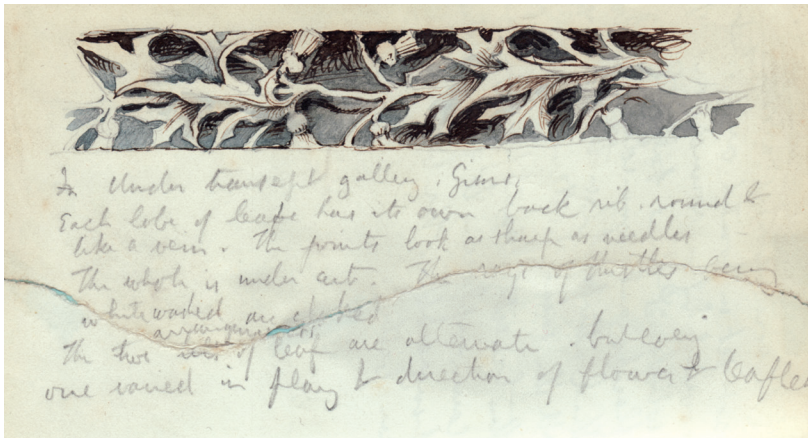 In Under transept gallery.
Each lobe of leaf has its own back rib. round &
like a vein. The points look as sharp as needles
The whole is under cut. The of thistles being
whitewashed are
arrangements
The two of leaf are alternate. but every
one varied in play & direction of flower & leaflet